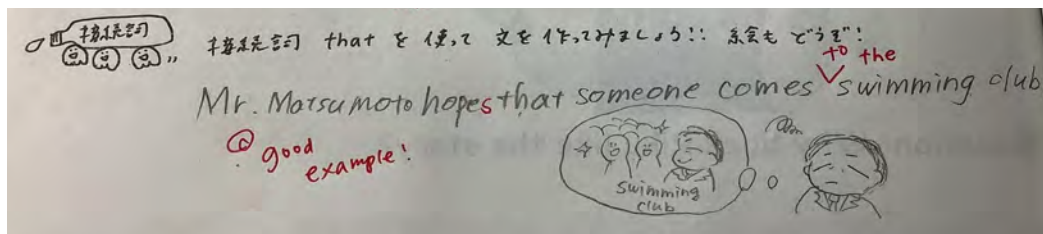 接続詞
接続詞 that を使って文を作ってみましょう!! 絵もどうぞ!
to the
Mr. Matsumoto hopes that someone comes swimming club
good example!
swimming club